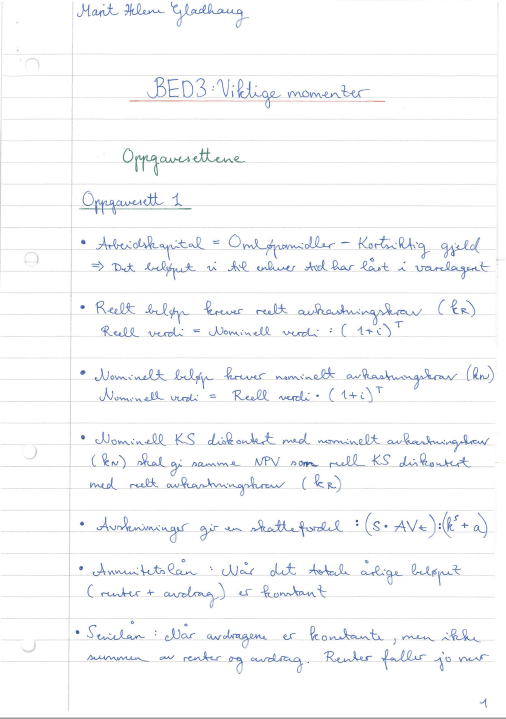 Marit Helene Gladhaug
BED3: Viktige momenter
Oppgavesettene
Oppgavesett 1
• Arbeidskapital = Omløpsmidler - Kortsiktig gjeld
⇒ Det beløpet vi til enhver tid har låst i varelageret
• Reelt beløp krever reelt avkastningskrav (kR)
Reell verdi = Nominell verdi : (1+i)^T
• Nominelt beløp krever nominelt avkastningskrav (kN)
Nominell verdi = Reell verdi · (1+i)^T
• Nominell KS diskontert med nominelt avkastningskrav
(kN) skal gi samme NPV som reell KS diskontert
med reelt avkastningskrav (kR)
• Avskrivninger gir en skattefordel : (S · AVt):(k^s + a)
• Annuitetslån : Når det totale årlige beløpet
(renter + avdrag) er konstant
• Serielån : Når avdragene er konstante, men ikke
summen av renter og avdrag. Renter faller jo mer
1